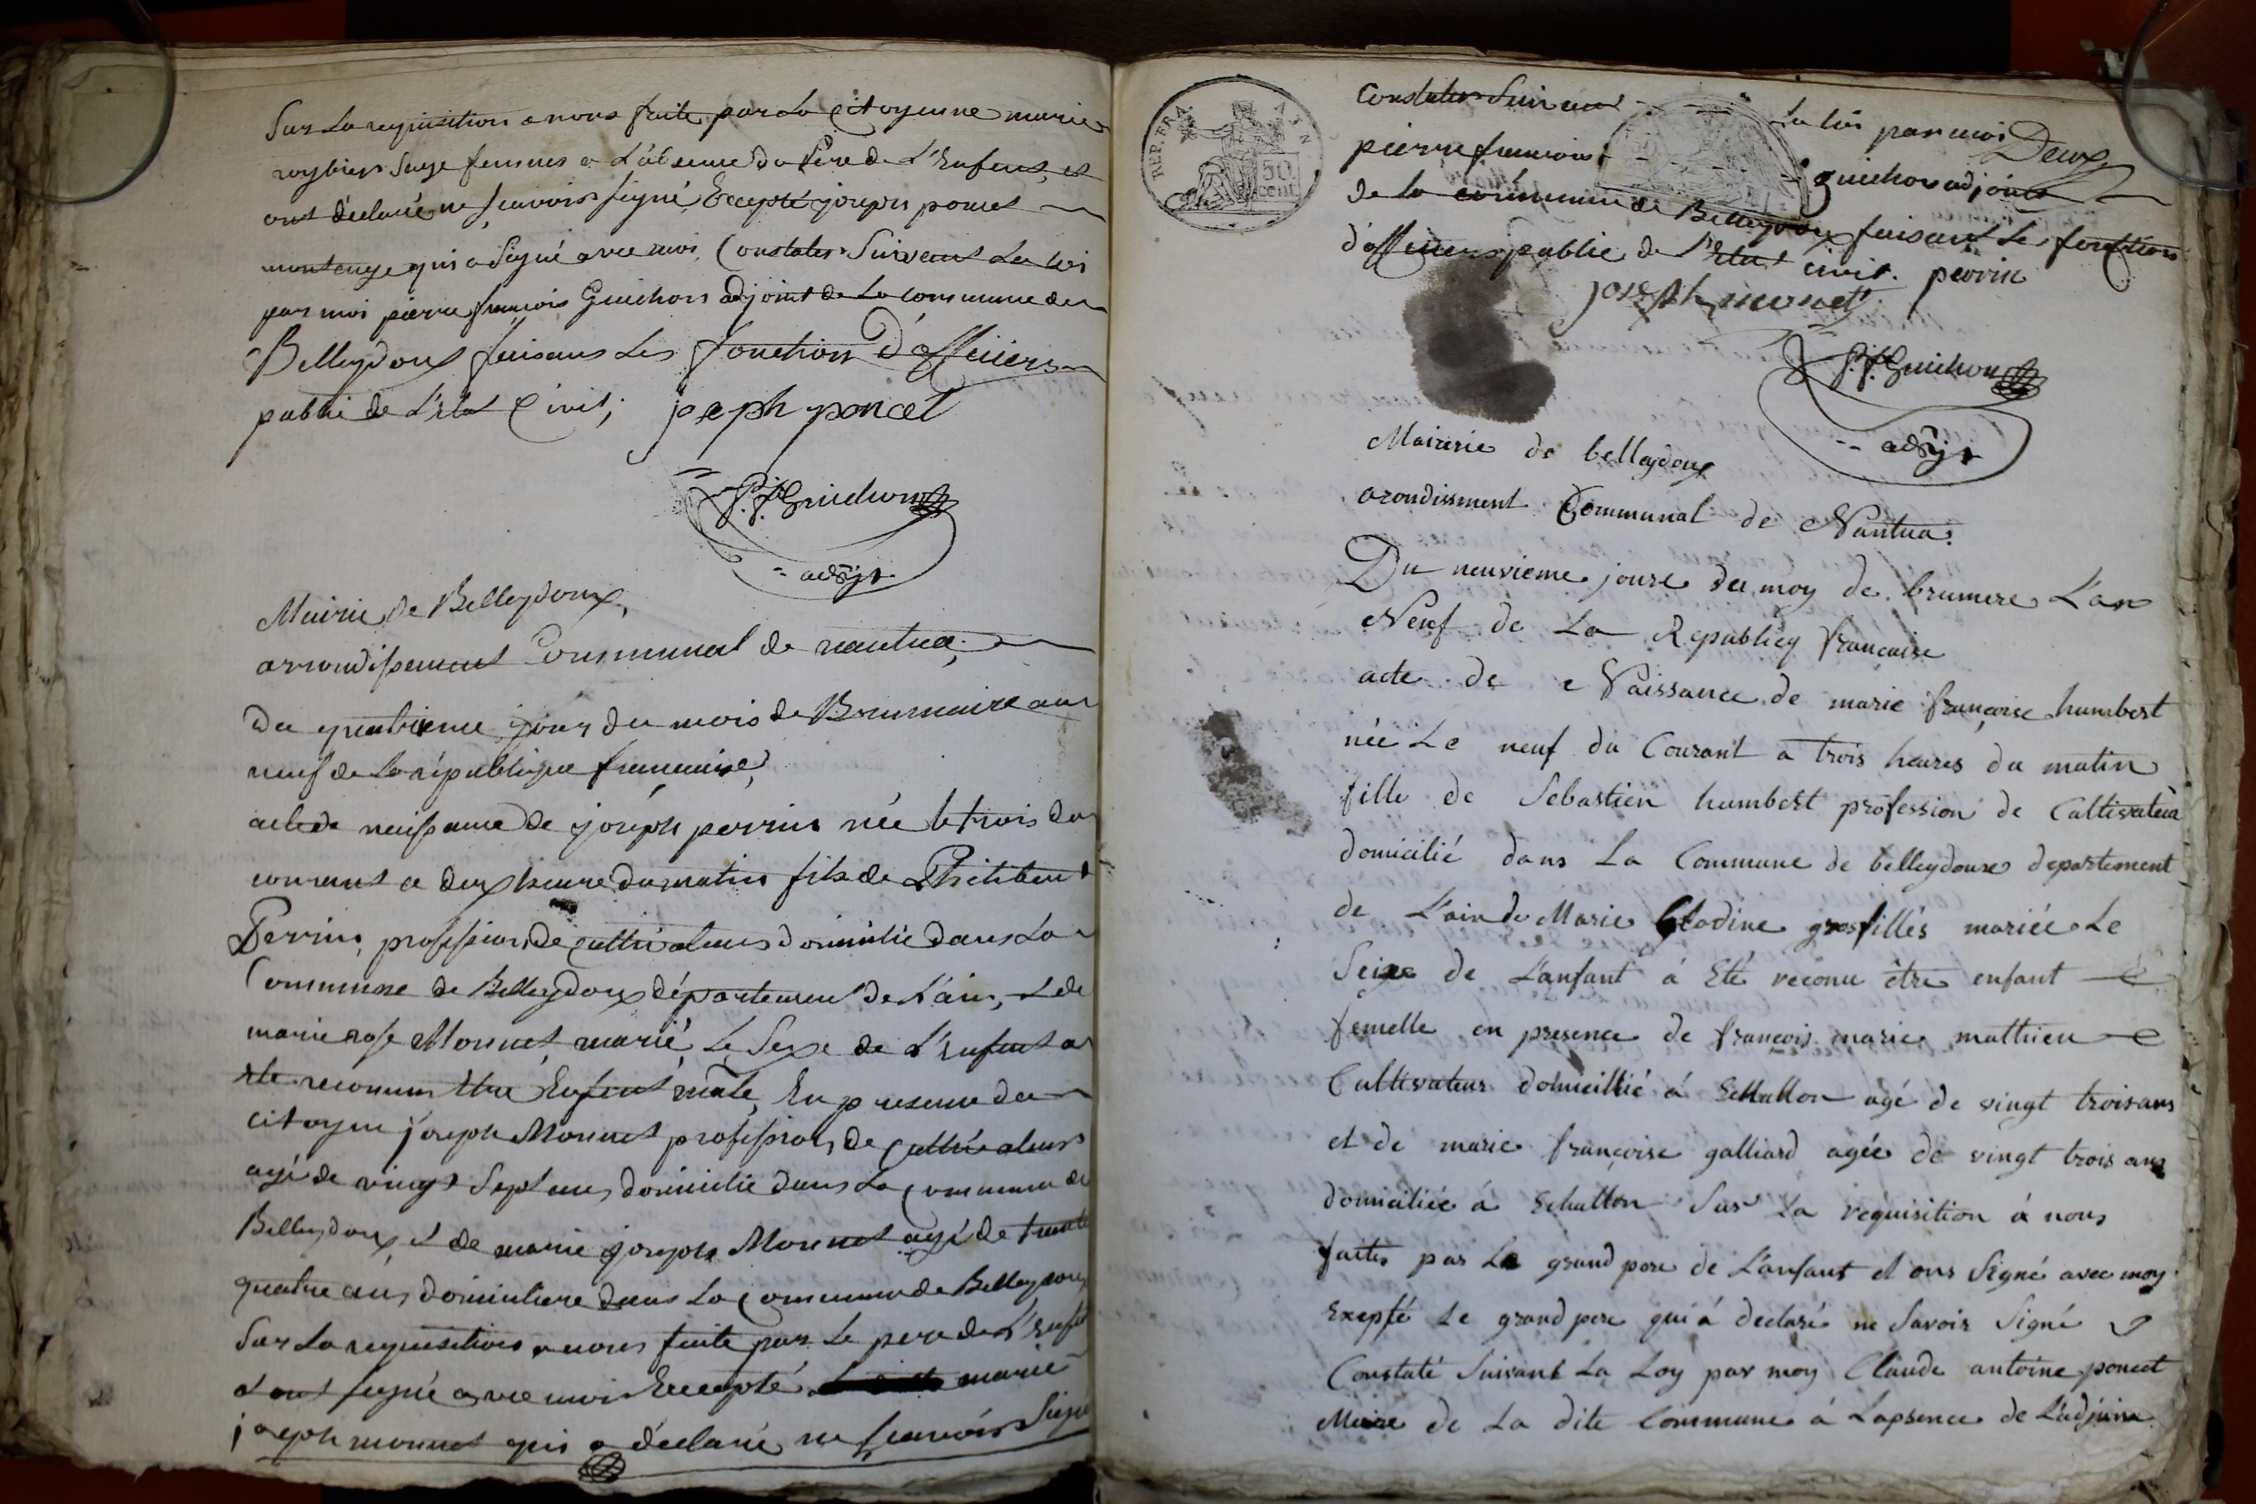 Sur La requisition a nous faite par La Citoyenne marie
sage femme a L'absence du Pere de L'Enfent, et
ont déclaré ne scavoirs signé Excepté joseph poncet
qui a Signé avec moi, Constater Suivant La loi
par moi pierre francois Guichon adjoint de La commune de
Belleydoux faisant Les fonction D'officiers
public de L'etat Civil; joseph poncet
P. f. Guichon
adjt
Mairie de Belleydoux,
arrondissement Communal de nantua,
du quatrieme jour du mois de Brumaire an
neuf de La république francaise,
acte de naissance de joseph perrin née le trois du
courant a deux heure du matin fils de Philibert
Perrin, profession de cultivateur domicilié dans La
Commune de Belleydoux département de L'ain, et de
marie rose Monnet, marié, Le Sexe de L'Enfent a
ete reconnu Etre Enfent mâle, En presence du
citoyen joseph Monnet profession, de Cultivateurs
agé de vingt Sept ans, domicilié dans La Commune de
Belleydoux et de marie joseph Monnet agé de trente
quatre ans, domiciliere dans La Commune de Belleydoux
Sur La requisition a nous faite par Le pere de L'Enfet
et ont signé avec moi Excepté marie
joseph monnet qui a déclaré ne scavoirs Signé
REP. FRA
50 cent
Constater Suivant La loi par moi
Deux
pierre francois guichon adjoint
de La commune de Belleydoux faisant Les fonction
d'officiers public de L'Etat Civil. perrin
joseph monet
P. f. Guichon
adjt
Mairerie de belleydoux
arondissment Communal de Nantua.
Du neuvieme jourr du moy de brumere L'an
Neuf de La Republicq francaise
acte de Naissance de marie françoise humbert
née Le neuf du Courant a trois heures du matin
fille de Sebastien humbert profession de Caltivateur
domicilié dans La Commune de belleydoux departement
de L'ain de Marie Glodine grosfilles mariée Le
Seixe de L'anfant á Eté reconu être enfant
femelle en presence de francois marie mathieu
Cultivateur domicillié á Echallon agé de vingt troisans
et de marie françoise galliard agée de vingt trois ans
domiciliée á Echallon Sur La réquisition á nous
faites par Le grand pere de L'anfant et ons Signé avec moy
Exepté Le grand pere qui á déclaré ne Savoir Signé
Constaté Suivant La Loy par moy Claude antoine poncet
Maire de La dite Commune á Lapsence de L'adjoint